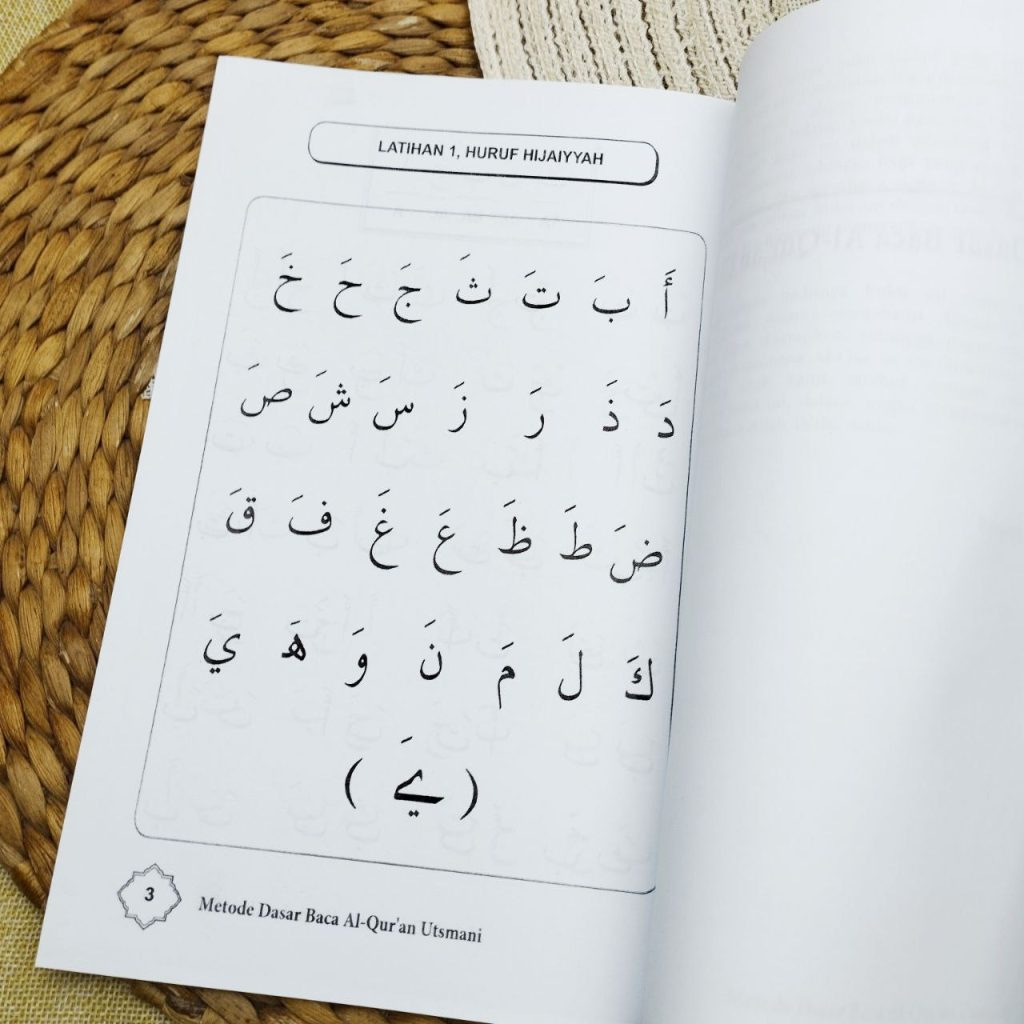 LATIHAN 1, HURUF HIJAIYYAH
أَ بَ تَ ثَ جَ حَ خَ
دَ ذَ رَ زَ سَ شَ صَ
ضَ طَ ظَ عَ غَ فَ قَ
كَ لَ مَ نَ وَ هَ يَ
( ےَ )
3
Metode Dasar Baca Al-Qur'an Utsmani